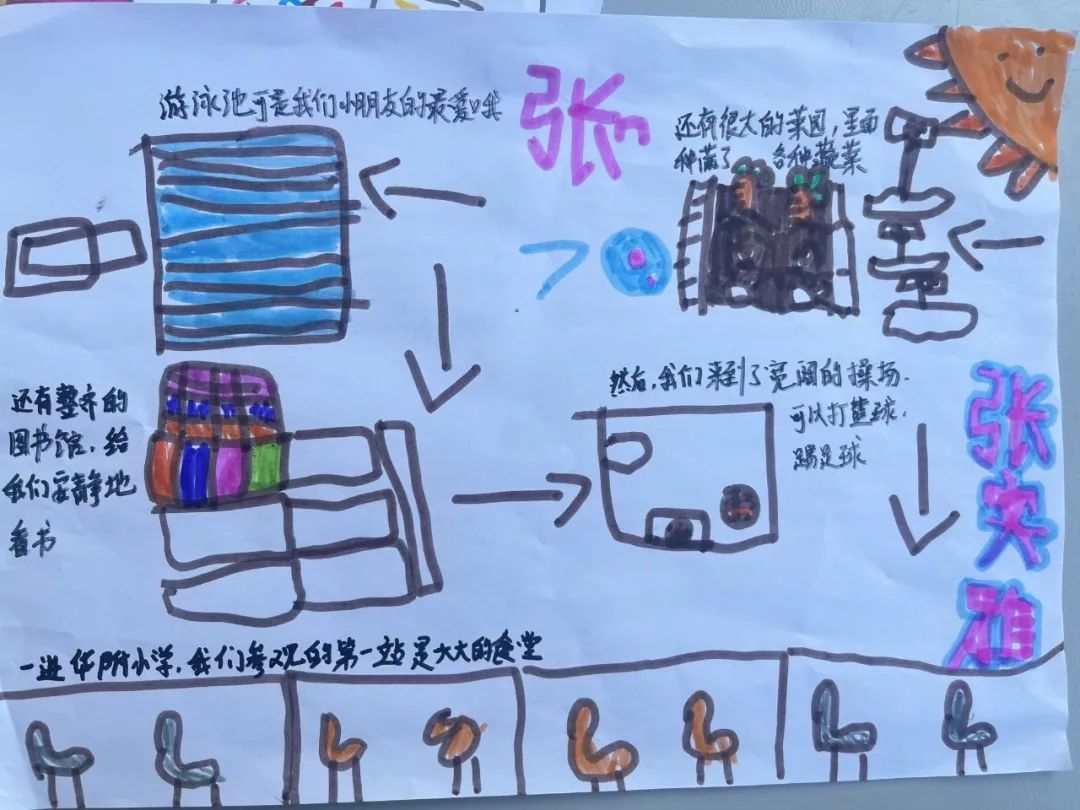 游泳池可是我们小朋友的最爱哦
张
还有很大的菜园，里面
种满了 各种蔬菜
还有整齐的
图书馆，给
我们安静地
看书
然后，我们来到了宽阔的操场.
可以打篮球.
踢足球
张
实
一进华附小学，我们参观的第一站是大大的食堂